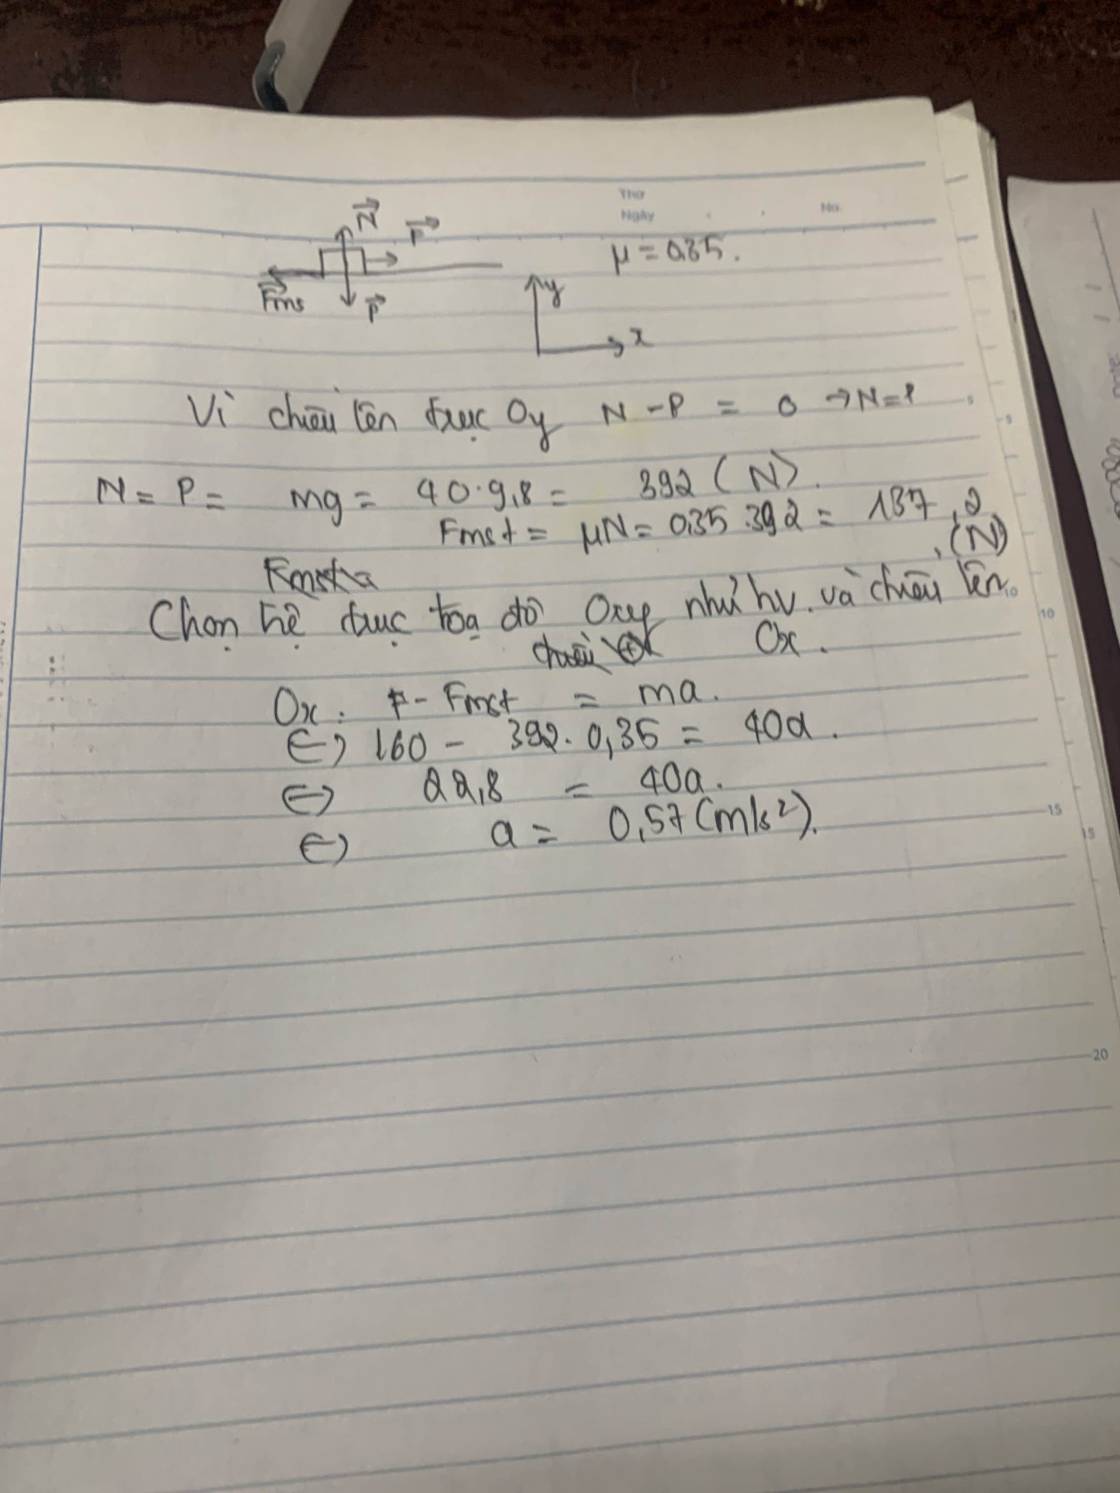 Thứ
Ngày
No.
N F
μ = 0,35.
Fms P
y
x
Vì chiếu lên trục Oy N - P = 0 → N = P
N = P = mg = 40.9,8 = 392 (N).
Fmst = μN = 0,35.392 = 137,2
(N)
Chọn hệ trục toạ độ Oxy như hv và chiếu lên
chiều ⊕ Ox.
Ox: F - Fmst = ma.
⇔ 160 - 392.0,35 = 40a.
⇔ 22,8 = 40a.
⇔ a = 0,57 (m/s²).
5
10
15
20
5
10
15